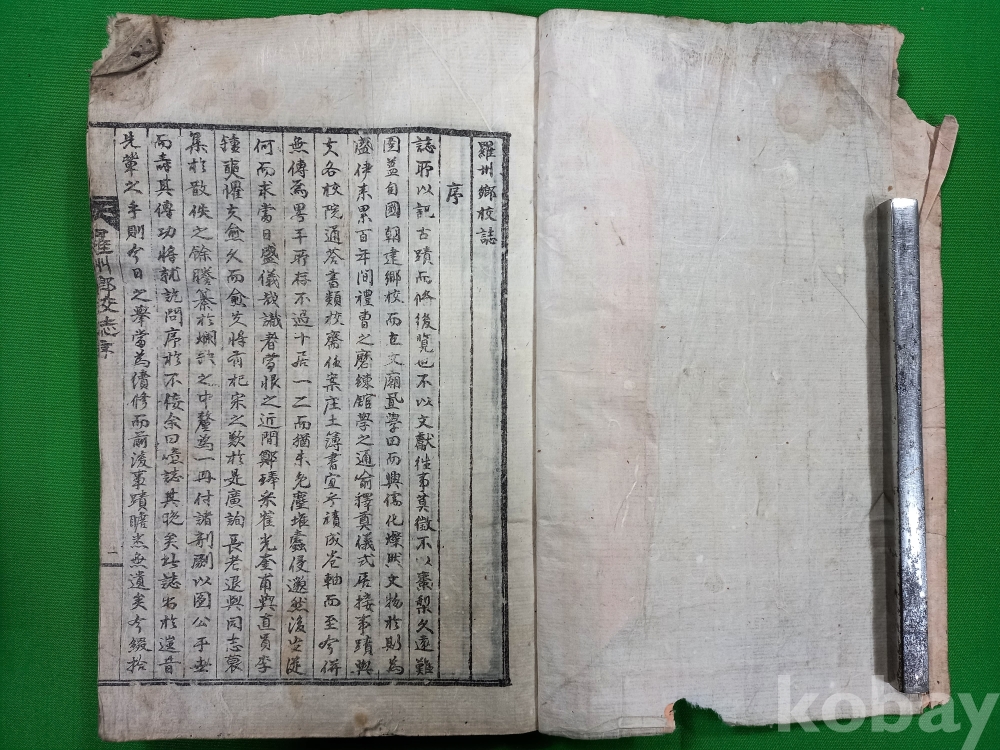 羅州鄉校誌
序
誌所以記古蹟而俻後覽也不以文獻往事莫徵不以棗梨久遠難
圖盖自國朝建鄉校而立文廟置學田而興儒化燦然文物於斯為
盛伊来累百年間禮曹之磨鍊舘學之通喻釋奠儀式居接事蹟與
夫各校院通荅書類校齋任案庄土簿書宜乎積成卷軸而至今併
無傳為畧干所存不過十居一二而猶未免塵堆蠹侵邈然後生從
何而求當日盛儀哉識者當恨之近間鄭琫采崔光奎甫與直員李
鍾奭懼夫愈久而愈失將有杞宋之歎於是廣詢長老退與同志裒
集於散佚之餘謄纂於爛 之中釐為一冊付諸剞劂以圖公乎世
而壽其傳功將就訖問序於不佞余曰噫誌其晚矣此誌若於遠昔
先輩之手則今日之擧當為續修而前後事蹟瞻然無遺矣今綴拾
羅州鄉校志序
一
kobay